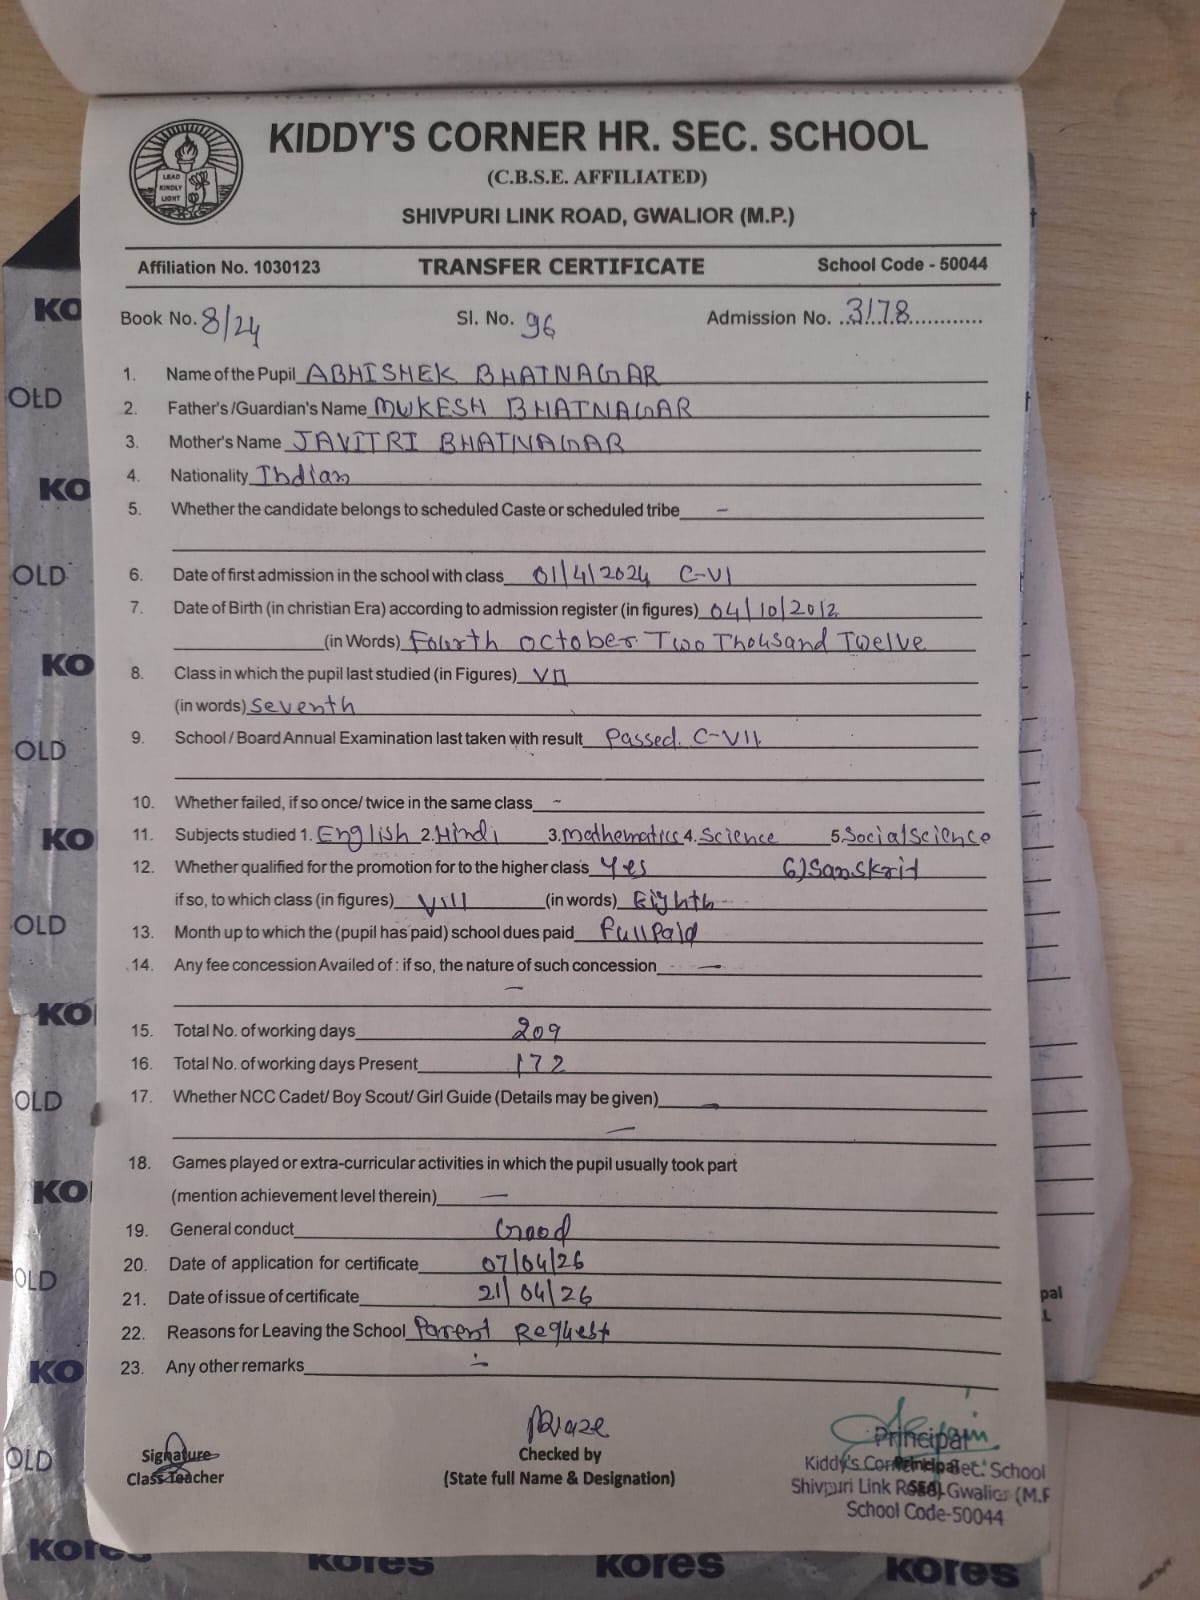 KIDDY'S CORNER HR. SEC. SCHOOL
(C.B.S.E. AFFILIATED)
LEAD KINDLY LIGHT
SHIVPURI LINK ROAD, GWALIOR (M.P.)
Affiliation No. 1030123 TRANSFER CERTIFICATE School Code - 50044
Book No. 8/24 Sl. No. 96 Admission No. 3178
1. Name of the Pupil ABHISHEK BHATNAGAR
2. Father's /Guardian's Name MUKESH BHATNAGAR
3. Mother's Name JAVITRI BHATNAGAR
4. Nationality Indian
5. Whether the candidate belongs to scheduled Caste or scheduled tribe -
6. Date of first admission in the school with class 01/4/2024 C-VI
7. Date of Birth (in christian Era) according to admission register (in figures) 04/10/2012
(in Words) Fourth october Two Thousand Twelve
8. Class in which the pupil last studied (in Figures) VII
(in words) Seventh
9. School / Board Annual Examination last taken with result Passed. C-VII
10. Whether failed, if so once/ twice in the same class -
11. Subjects studied 1. English 2. Hindi 3. mathematics 4. Science 5. Social Science
12. Whether qualified for the promotion for to the higher class Yes 6) Sanskrit
if so, to which class (in figures) VIII (in words) Eighth
13. Month up to which the (pupil has paid) school dues paid Full Paid
14. Any fee concession Availed of : if so, the nature of such concession -
-
15. Total No. of working days 209
16. Total No. of working days Present 172
17. Whether NCC Cadet/ Boy Scout/ Girl Guide (Details may be given) -
-
18. Games played or extra-curricular activities in which the pupil usually took part
(mention achievement level therein) -
19. General conduct Good
20. Date of application for certificate 07/04/26
21. Date of issue of certificate 21/04/26
22. Reasons for Leaving the School Parent Request
23. Any other remarks -
Signature
Class Teacher
Checked by
(State full Name & Designation)
Principal
Principal
SEAL
Kiddy's Sec. School
Shivpuri Link Gwalior (M.P
School Code-50044
KO
OLD
KO
OLD
KO
OLD
KO
OLD
KO
OLD
KO
OLD
KO
OLD
kores kores kores
pal